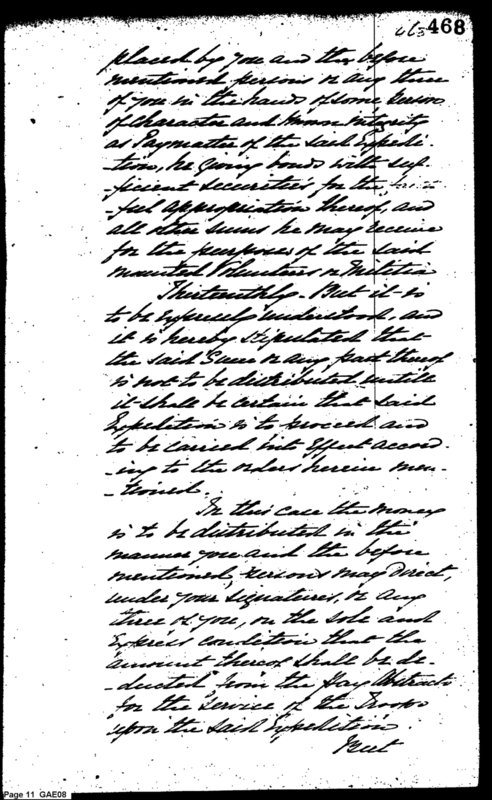 463 468
placed by you and the before
mentioned persons or any three
of you in the hands of some person
of character and known integrity
as Paymaster of the said Expedi-
-tion, he giving bonds with suf-
-ficient securities for the
-ful appropriation thereof, and
all other sums he may receive
for the purposes of the said
mounted Volunteers or Militia
Thirteenthly. But it is
to be expressly understood, and
it is hereby stipulated that
the said Sum or any part thereof
is not to be distributed untill
it shall be certain that said
Expedition is to proceed and
to be carried into effect accord-
-ing to the orders herein men-
-tioned.
In this case the money
is to be distributed in the
manner you and the before
mentioned persons may direct,
under your signatures, or any
three of you, on the sole and
express condition that the
amount thereof shall be de-
-ducted from the Pay Abstracts
for the service of the Troops
upon the said Expedition.
But
Page 11 GAE08